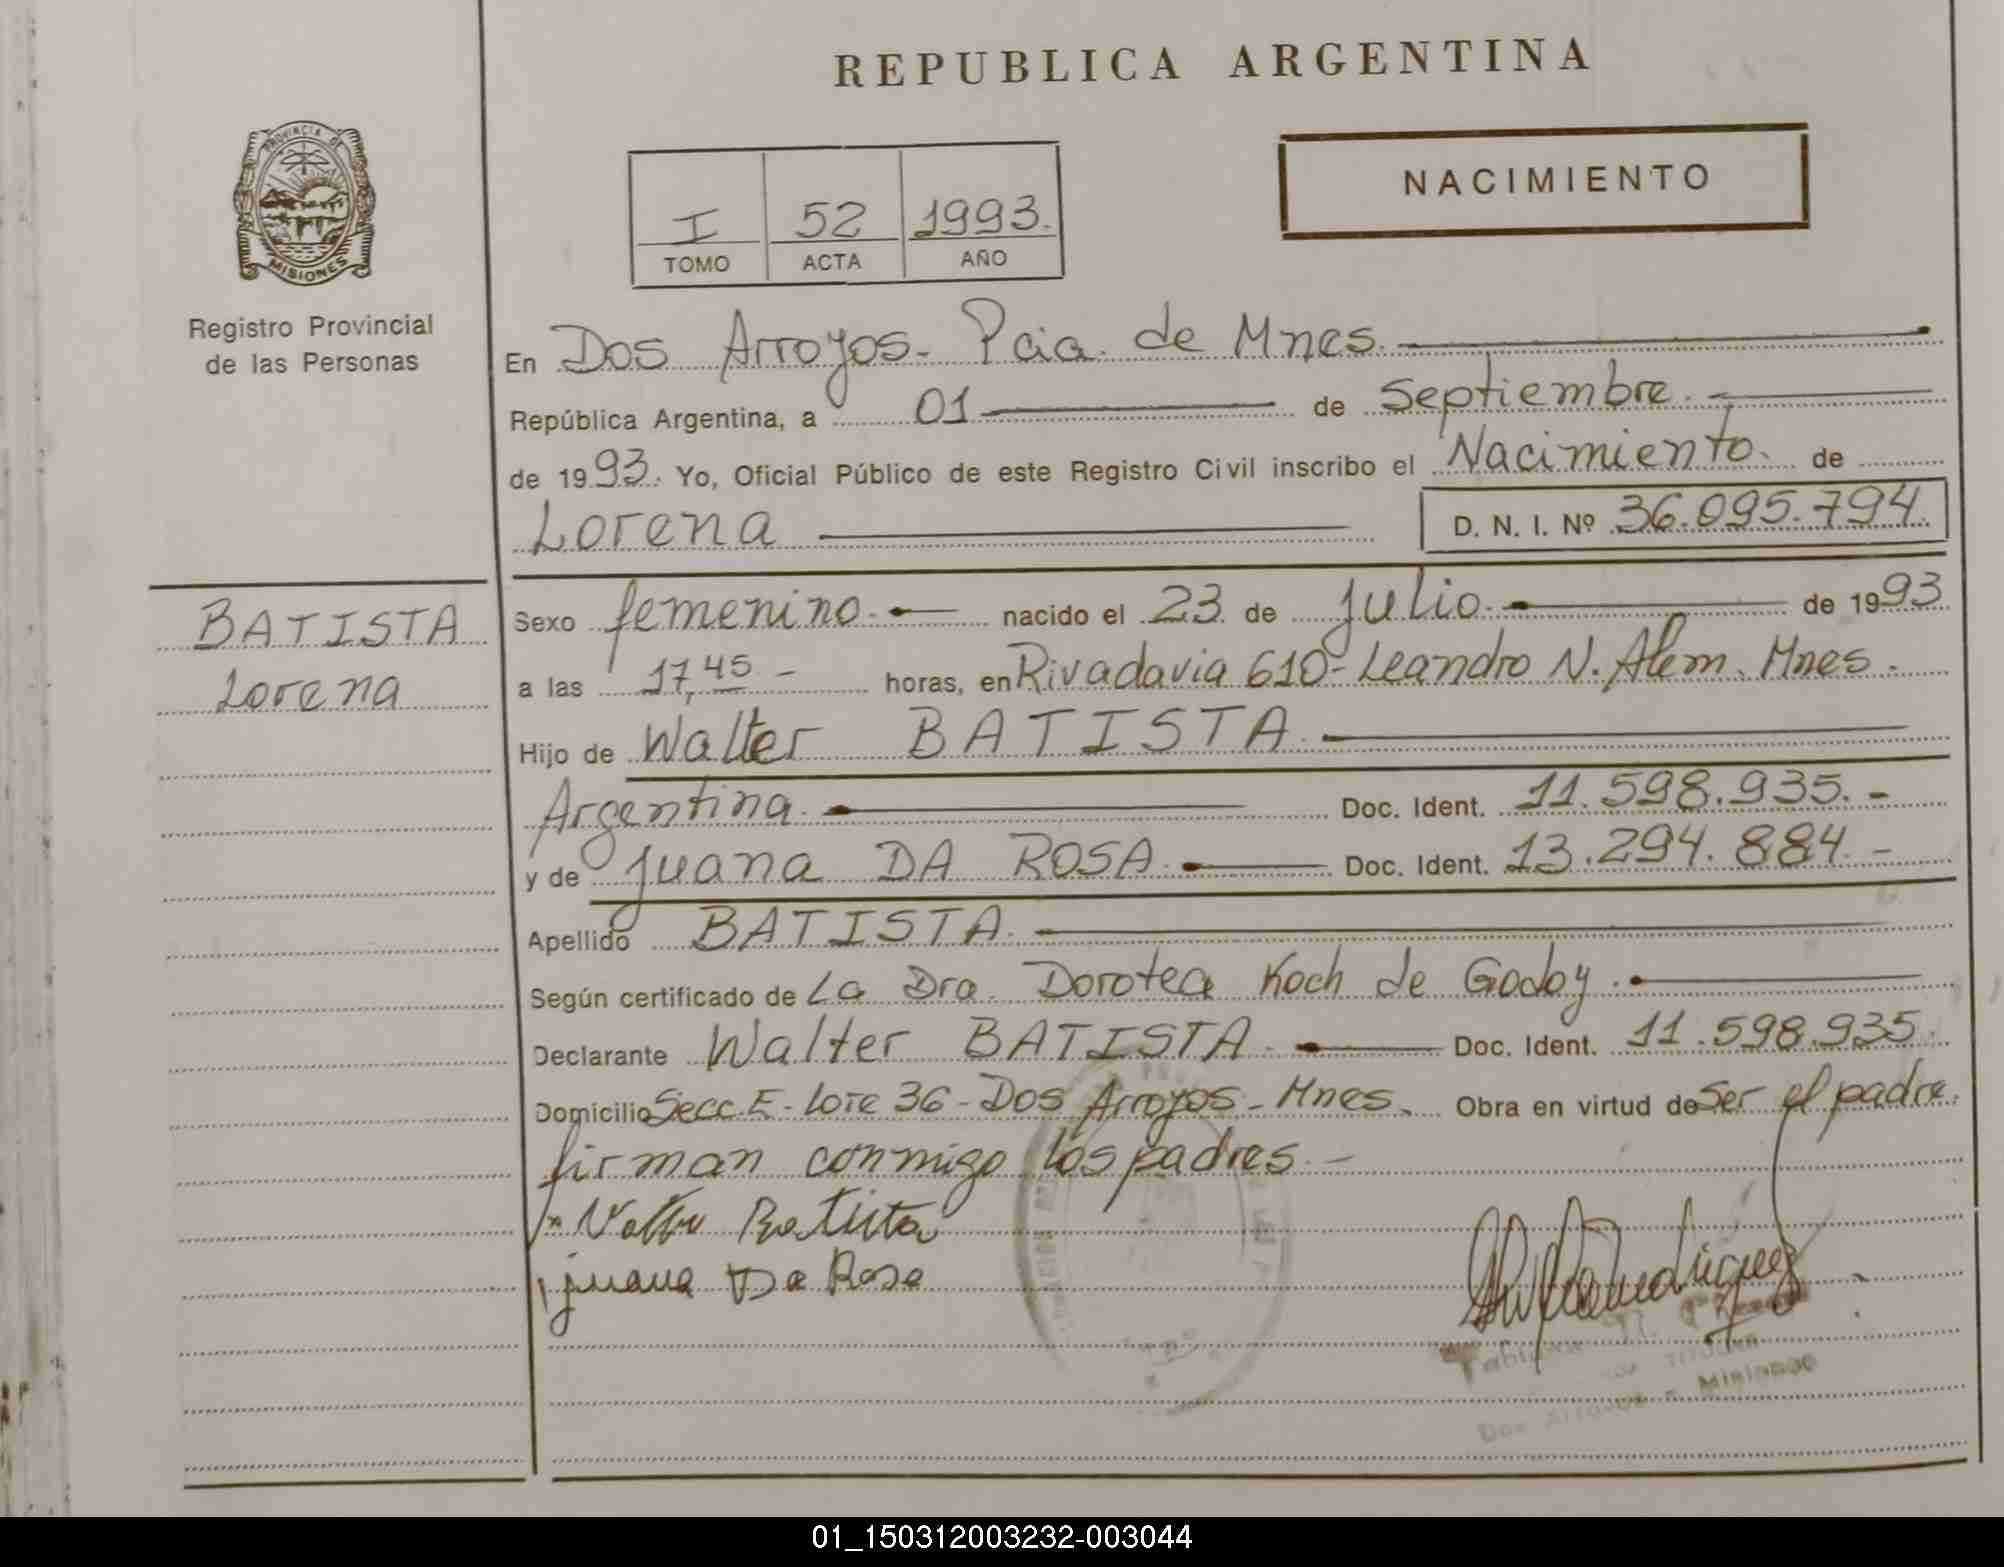 REPUBLICA ARGENTINA
PROVINCIA DE
MISIONES
Registro Provincial
de las Personas
I 52 1993.
TOMO ACTA AÑO
NACIMIENTO
En Dos Arroyos - Pcia. de Mnes.
República Argentina, a 01 de Septiembre.
de 1993. Yo, Oficial Público de este Registro Civil inscribo el Nacimiento. de
Lorena D. N. I. Nº 36.095.794.
BATISTA
Lorena
Sexo femenino. nacido el 23 de Julio. de 1993
a las 17,45.- horas, en Rivadavia 610- Leandro N. Alem. Mnes.
Hijo de Walter BATISTA.
Argentina. Doc. Ident. 11.598.935.-
y de Juana DA ROSA. Doc. Ident. 13.294.884.-
Apellido BATISTA.
Según certificado de La Dra. Dorotea Koch de Godoy.
Declarante Walter BATISTA. Doc. Ident. 11.598.935.
Domicilio Secc. E - Lote 36 - Dos Arroyos - Mnes. Obra en virtud de Ser el padre.
firman conmigo los padres.-
Batista
Juana Da Rosa
Dos Arroyos - Misiones
01_150312003232-003044